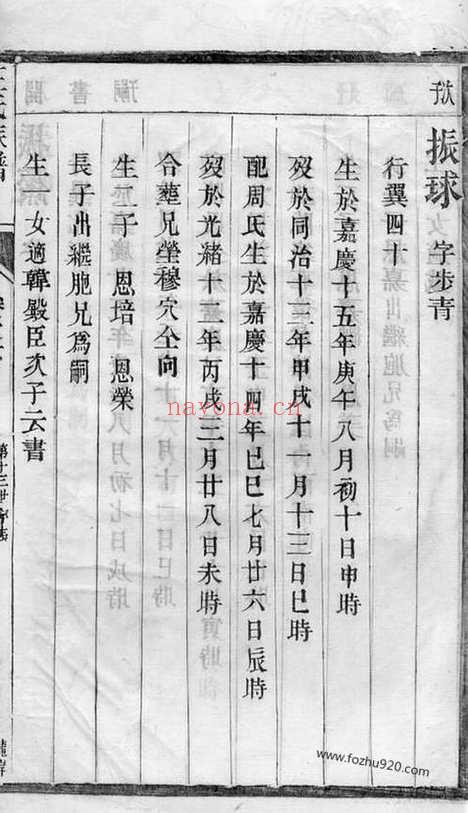 振球 字步青
行翼四十
生於嘉慶十五年庚午八月初十日申時
歿於同治十三年甲戌十一月十三日巳時
配周氏生於嘉慶十四年己巳七月廿六日辰時
歿於光緒十二年丙戌三月廿八日未時
合葬兄塋穆穴仝向
生二子 恩培 恩榮
長子出繼胞兄爲嗣
生一女適韓毅臣次子云書
nayona.cn
www.fozhu920.com